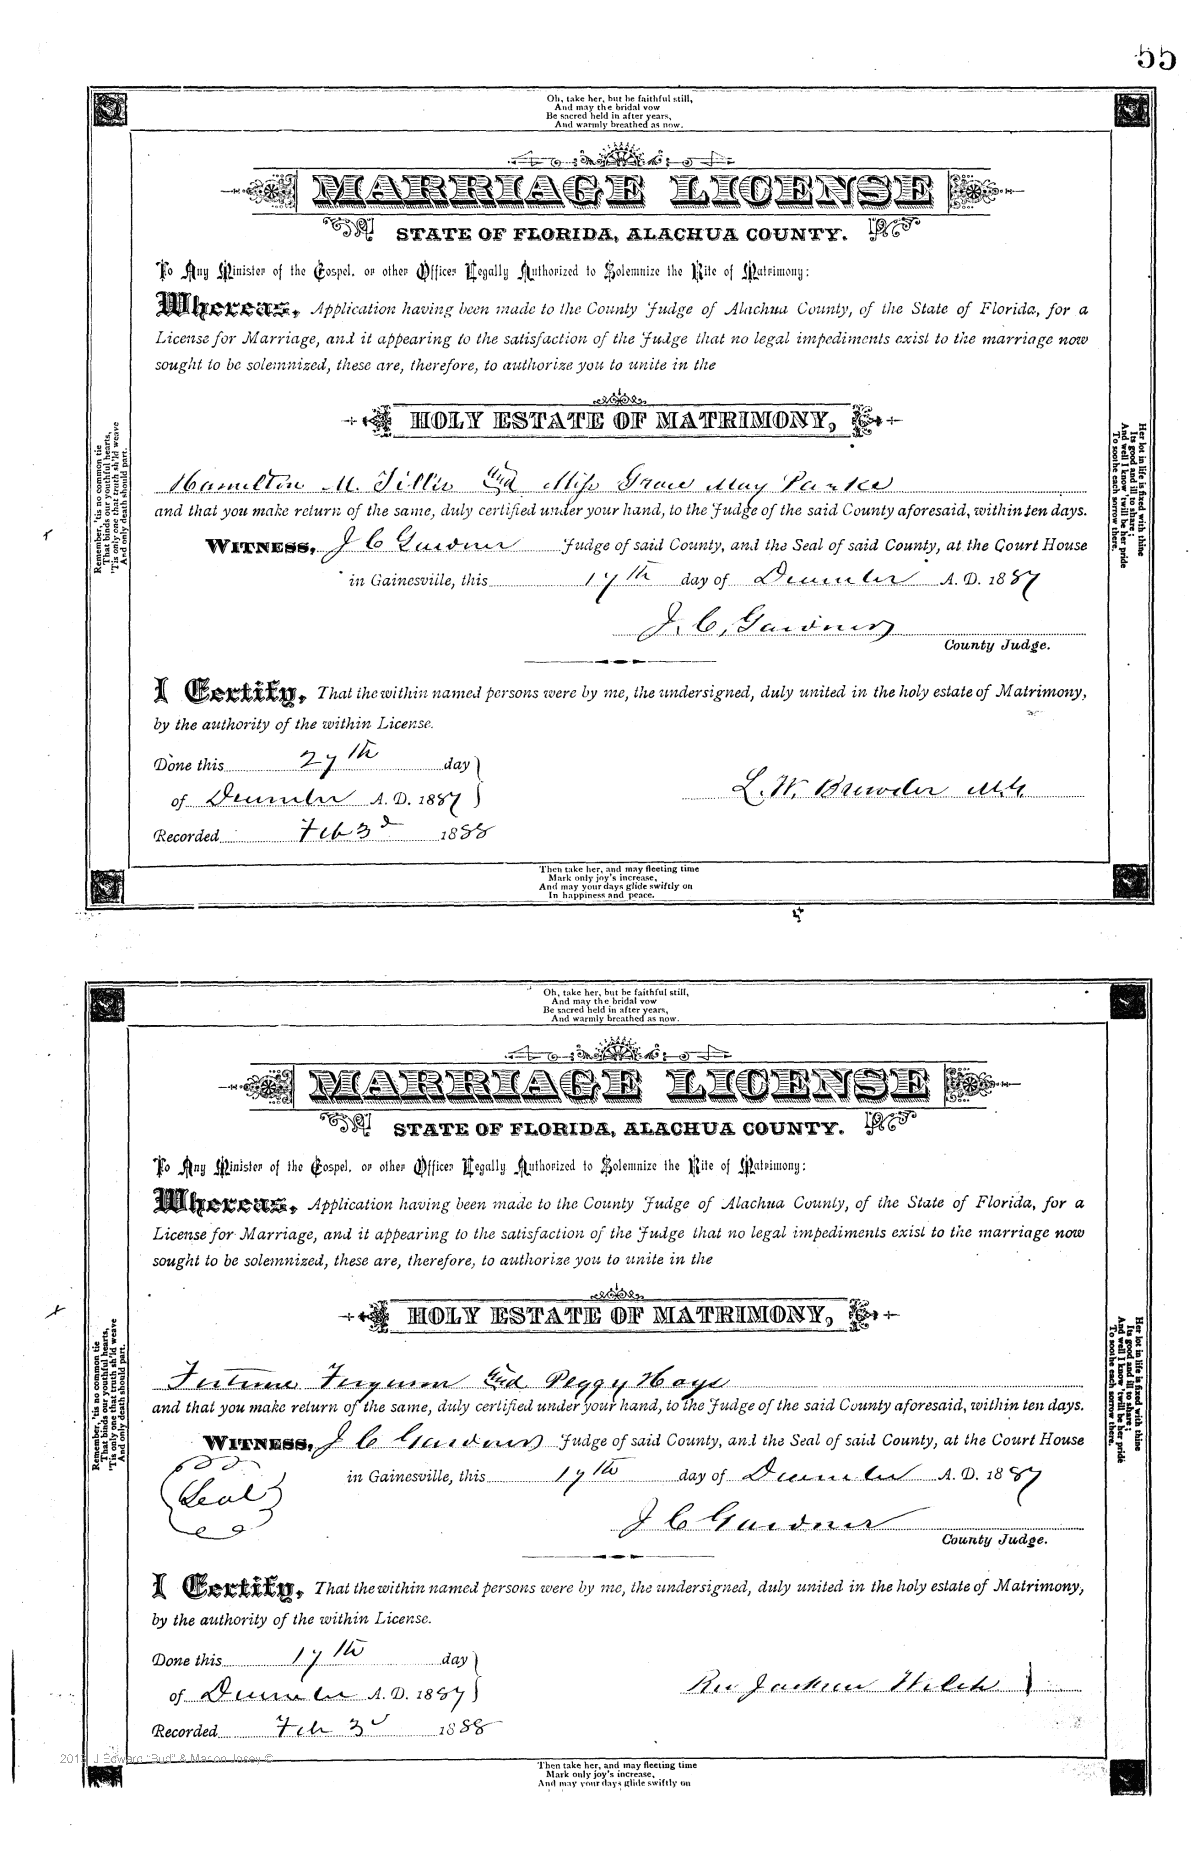 55
Oh, take her, but be faithful still,
And may the bridal vow
Be sacred held in after years,
And warmly breathed as now.
MARRIAGE LICENSE
STATE OF FLORIDA, ALACHUA COUNTY.
To Any Minister of the Gospel, or other Officer Legally Authorized to Solemnize the Rite of Matrimony:
Whereas, Application having been made to the County Judge of Alachua County, of the State of Florida, for a
License for Marriage, and it appearing to the satisfaction of the Judge that no legal impediments exist to the marriage now
sought to be solemnized, these are, therefore, to authorize you to unite in the
HOLY ESTATE OF MATRIMONY,
Remember, 'tis no common tie
That binds our youthful hearts,
'Tis only one that truth sh'ld weave
And only death should part.
Her lot in life is fixed with thine
Its good and ill to share;
And well I know 'twill be her pride
To soothe each sorrow there.
Hamilton M. Tillis and Miss Grace May Parke
and that you make return of the same, duly certified under your hand, to the Judge of the said County aforesaid, within ten days.
WITNESS, J C Gardner Judge of said County, and the Seal of said County, at the Court House
in Gainesville, this 17th day of December A. D. 1887
J. C. Gardner
County Judge.
I Certify, That the within named persons were by me, the undersigned, duly united in the holy estate of Matrimony,
by the authority of the within License.
Done this 27th day
of December A. D. 1887
L. W. Browder M.G.
Recorded Feb 3d 1888
Then take her, and may fleeting time
Mark only joy's increase,
And may your days glide swiftly on
In happiness and peace.
Oh, take her, but be faithful still,
And may the bridal vow
Be sacred held in after years,
And warmly breathed as now.
MARRIAGE LICENSE
STATE OF FLORIDA, ALACHUA COUNTY.
To Any Minister of the Gospel, or other Officer Legally Authorized to Solemnize the Rite of Matrimony:
Whereas, Application having been made to the County Judge of Alachua County, of the State of Florida, for a
License for Marriage, and it appearing to the satisfaction of the Judge that no legal impediments exist to the marriage now
sought to be solemnized, these are, therefore, to authorize you to unite in the
HOLY ESTATE OF MATRIMONY,
Remember, 'tis no common tie
That binds our youthful hearts,
'Tis only one that truth sh'ld weave
And only death should part.
Her lot in life is fixed with thine
Its good and ill to share;
And well I know 'twill be her pride
To soothe each sorrow there.
Fortune Ferguson and Peggy Hays
and that you make return of the same, duly certified under your hand, to the Judge of the said County aforesaid, within ten days.
WITNESS, J C Gardner Judge of said County, and the Seal of said County, at the Court House
Seal
in Gainesville, this 17th day of December A. D. 1887
J C Gardner
County Judge.
I Certify, That the within named persons were by me, the undersigned, duly united in the holy estate of Matrimony,
by the authority of the within License.
Done this 17th day
of December A. D. 1887
Rev Jackson Welch
Recorded Feb 3d 1888
J Edward "Bud" & Macon Josey ©
Then take her, and may fleeting time
Mark only joy's increase,
And may your days glide swiftly on